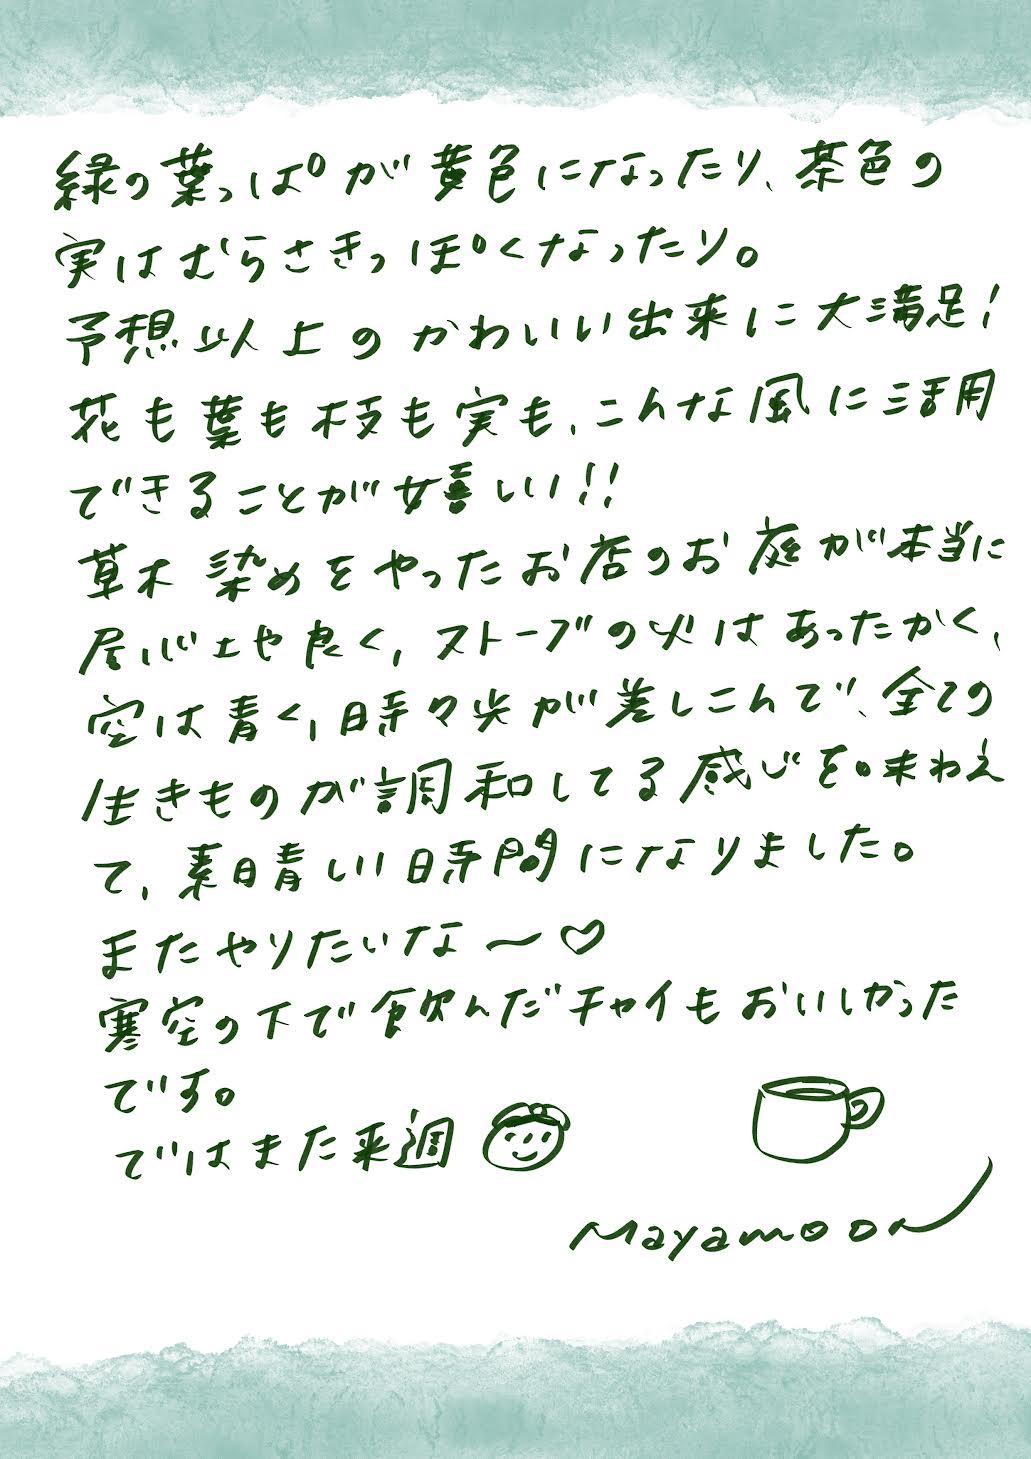 緑の葉っぱが黄色になったり、茶色の
実はむらさきっぽくなったり。
予想以上のかわいい出来に大満足!
花も葉も枝も実も、こんな風に活用
できることが嬉しい!!
草木染めをやったお店のお庭が本当に
居心地や良く、ストーブの火はあったかく、
空は青く、時々光が差しこんで、全ての
生きものが調和してる感じを味わえ
て、素晴しい時間になりました。
またやりたいな〜♡
寒空の下で飲んだチャイもおいしかった
です。
ではまた来週
Mayamoon